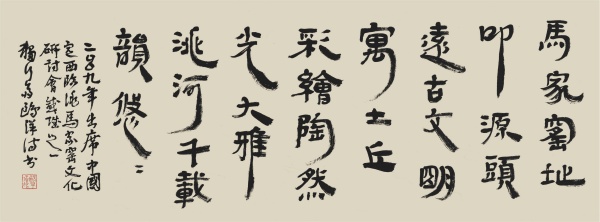 馬家窑址
叩源頭
遠古文明
寓土丘
彩繪陶然
光大雅
洮河千載
韻悠〻
二〇〇九年出席中國
定西臨洮馬家窑文化
研討會
書